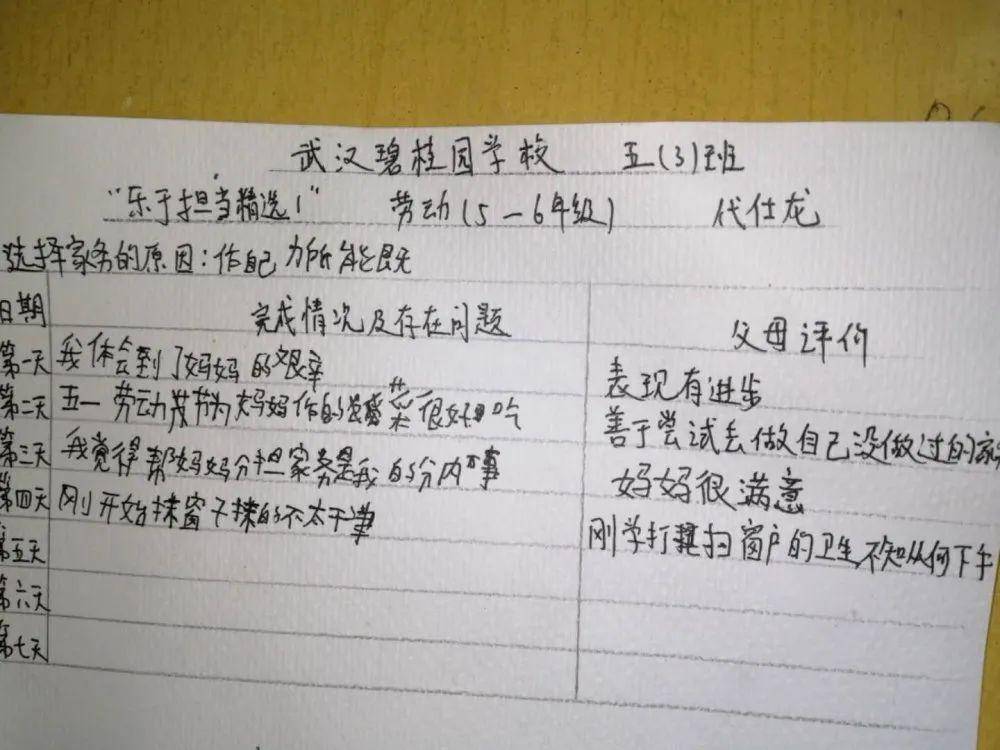 武汉碧桂园学校 五(3)班
“乐于担当精选1” 劳动(5-6年级) 代仕龙
选择家务的原因:作自己力所能既
日期 完成情况及存在问题 父母评价
第一天 我体会到了妈妈的艰辛 表现有进步
第二天 五一劳动节为妈妈作的菜很好吃 善于尝试去做自己没做过的家
第三天 我觉得帮妈妈分担家务是我的分内事 妈妈很满意
第四天 刚开始抹窗子抹的不太干净 刚学打扫窗户的卫生不知从何下手
第五天
第六天
第七天